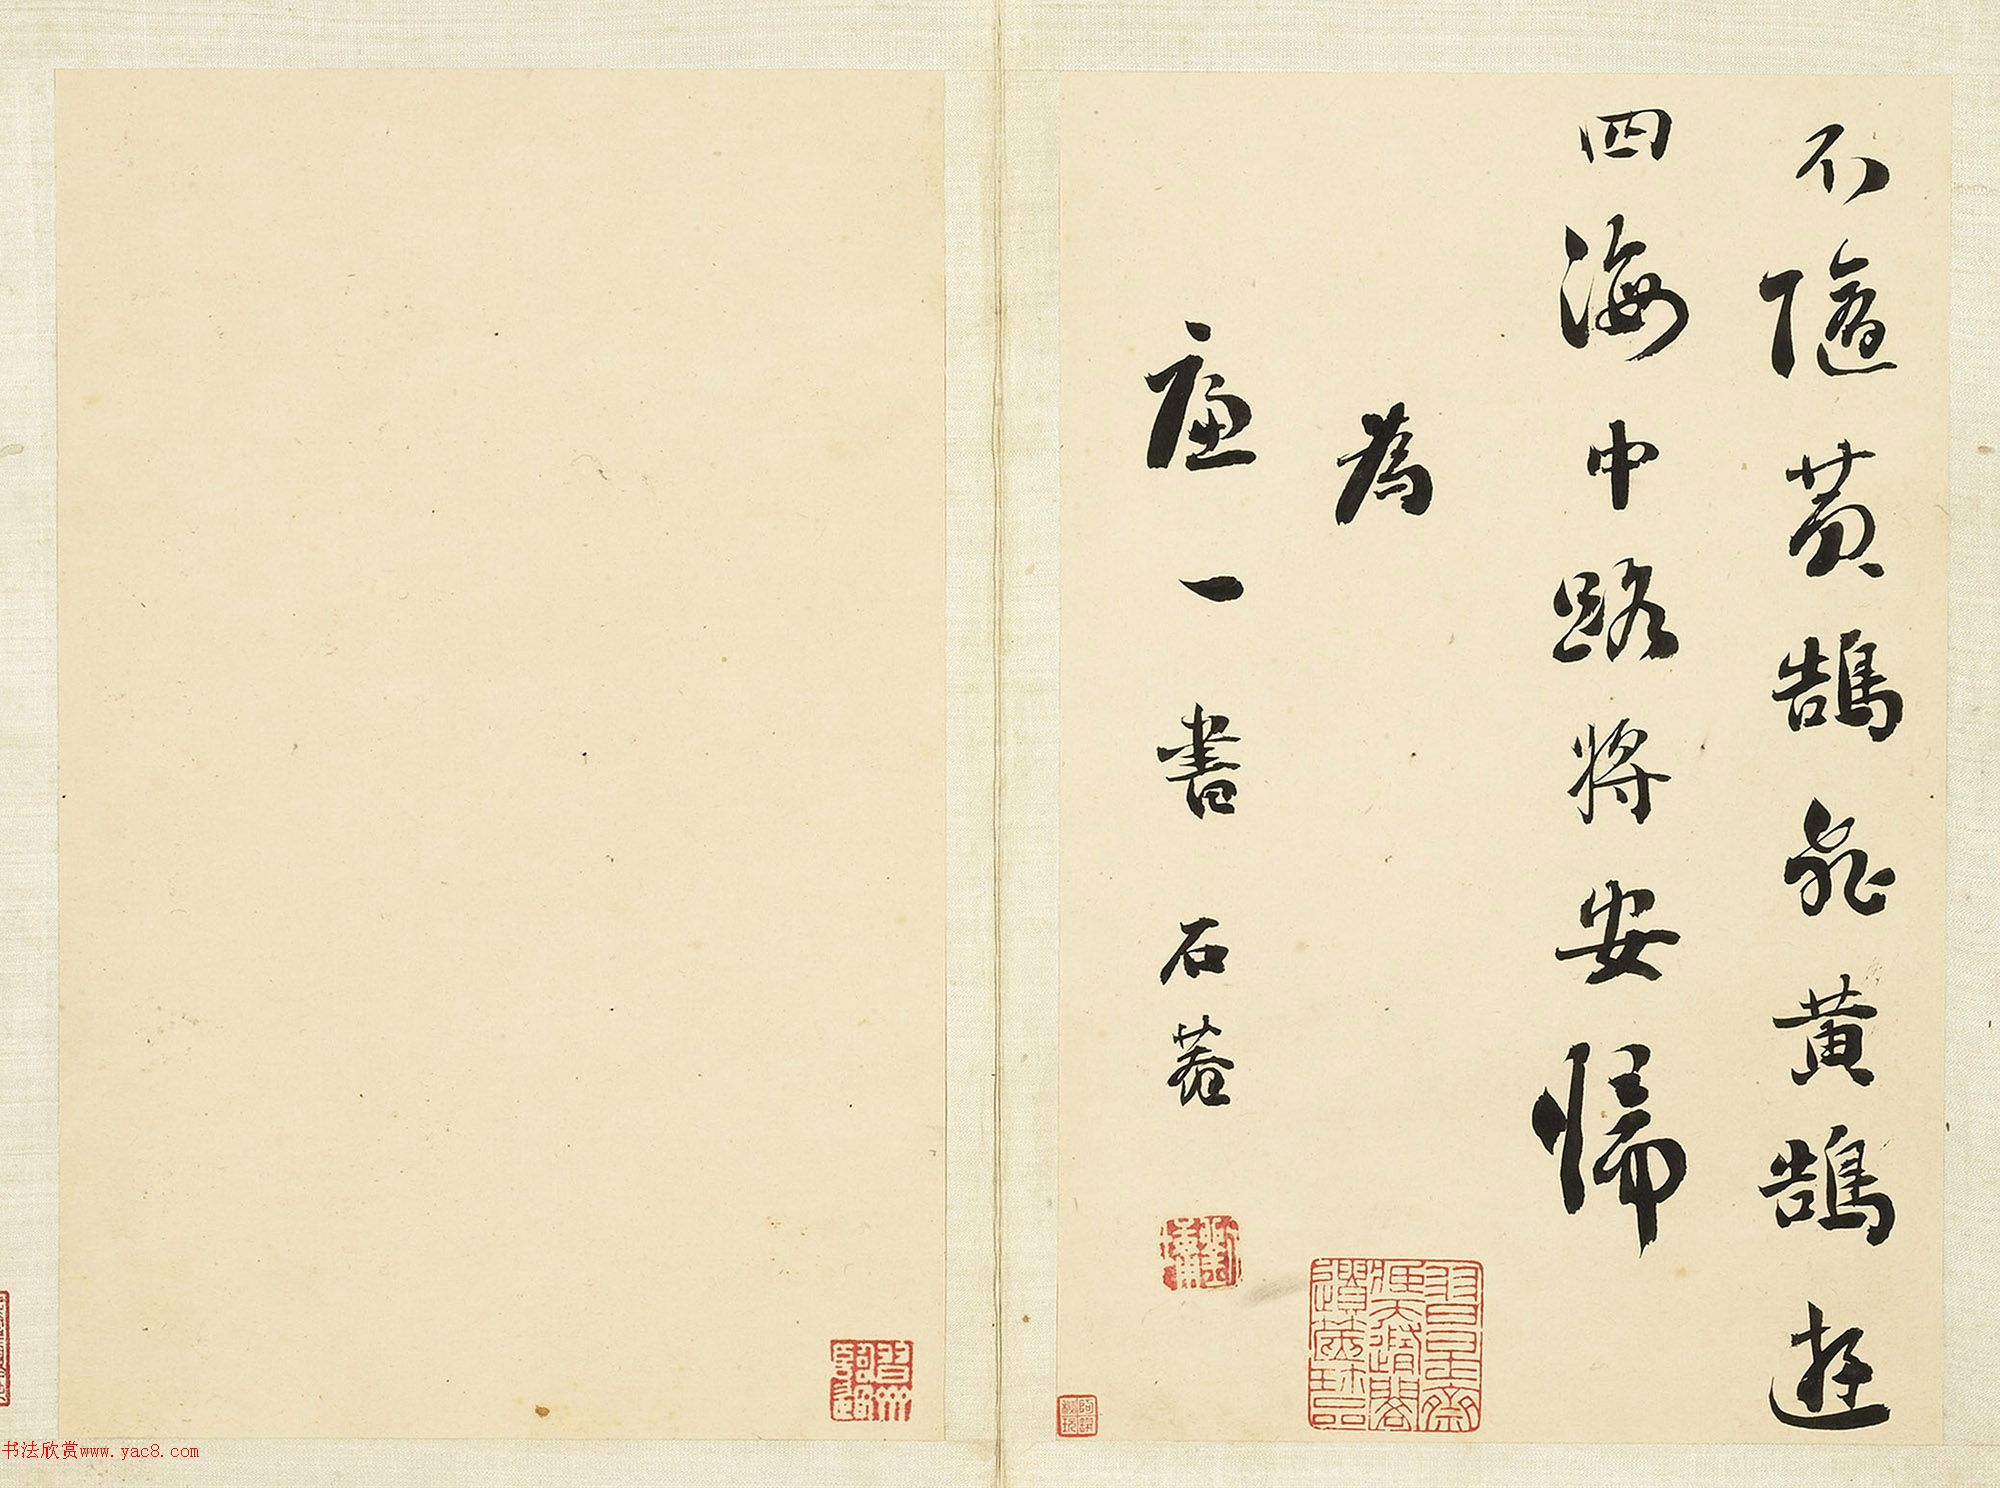 不隨黃鵠飛黃鵠遊
四海中路將安歸
為
廉一書 石菴
书法欣赏www.yac8.com